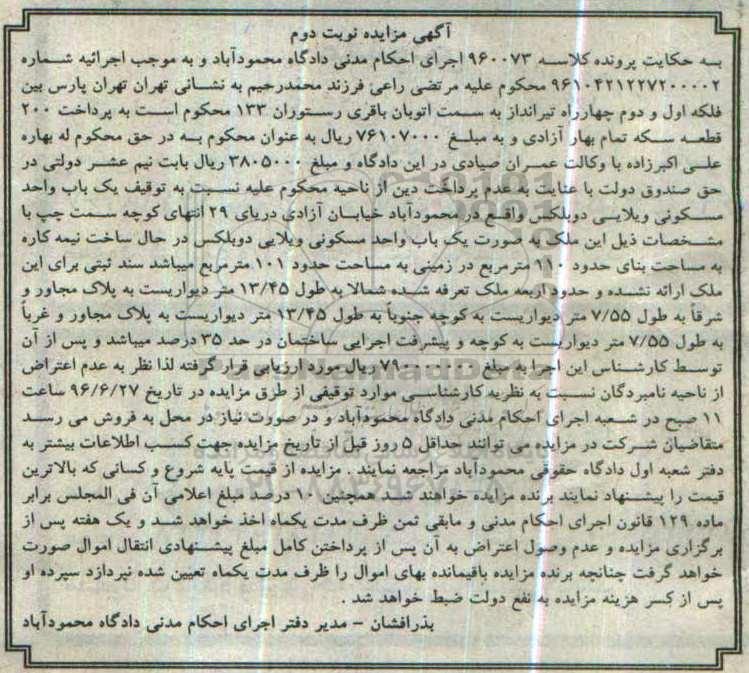 آگهی مزایده نوبت دوم
بـه حکایت پرونده کلاسـه ۹۶۰۰۷۳ اجرای احکام مدنی دادگاه محمودآباد و به موجب اجرائیه شـماره
۹۶۱۰۴۲۱۲۲۷۲۰۰۰۰۲ محکوم علیه مرتضی راعی فرزند محمدرحیم به نشـانی تهران تهران پارس بین
فلکه اول و دوم چهارراه تیرانداز به سـمت اتوبان باقری رسـتوران ۱۳۳ محکوم اسـت به پرداخت ۲۰۰
قطعـه سـکه تمام بهار آزادی و به مبلـغ ۷۶۱۰۷۰۰۰ ریال به عنوان محکوم بـه در حق محکوم له بهاره
علـی اکبرزاده با وکالت عمـران صیادی در این دادگاه و مبلغ ۳۸۰۵۰۰۰ ریال بابت نیم عشـر دولتی در
حق صندوق دولت با عنایت به عدم پرداخت دین از ناحیه محکوم علیه نسـبت به توقیف یک باب واحد
مسـکونی ویلایـی دوبلکس واقـع در محمودآباد خیابـان آزادی دریای ۲۹ انتهای کوچه سـمت چپ با
مشـخصات ذیل این ملک به صورت یک باب واحد مسـکونی ویلایی دوبلکس در حال ساخت نیمه کاره
به مساحت بنای حدود ۱۱۰ مترمربع در زمینی به مساحت حدود ۱۰۱ مترمربع میباشد سند ثبتی برای این
ملک ارائه نشـده و حدود اربعه ملک تعرفه شـده شمالا به طول ۱۳/۴۵ متر دیواریست به پلاک مجاور و
شرقاً به طول ۷/۵۵ متر دیواریست به کوچه جنوباً به طول ۱۳/۴۵ متر دیواریست به پلاک مجاور و غرباً
به طول ۷/۵۵ متر دیواریست به کوچه و پیشرفت اجرایی ساختمان در حد ۳۵ درصد میباشد و پس از آن
توسط کارشـناس این اجرا به مبلغ ریال مورد ارزیابی قرار گرفته لذا نظر به عدم اعتراض
از ناحیه نامبردگان نسـبت به نظریه کارشناسـی موارد توقیفی از طرق مزایده در تاریخ ۹۶/۶/۲۷ ساعت
۱۱ صبح در شـعبه اجرای احکام مدنی دادگاه محمودآباد و در صوورت نیاز در محل به فروش می رسـد
متقاضیان شـرکت در مزایده می توانند حداقل ۵ روز قبل از تاریخ مزایده جهت کسـب اطلاعات بیشتر به
دفتر شعبه اول دادگاه حقوقی محمودآباد مراجعه نمایند . مزایده از قیمت پایه شروع و کسانی که بالاترین
قیمت را پیشـنهاد نمایند برنده مزایده خواهند شـد همچنین ۱۰ درصد مبلغ اعلامی آن فی المجلس برابر
ماده ۱۲۹ قانون اجرای احکام مدنی و مابقی ثمن ظرف مدت یکماه اخذ خواهد شـد و یک هفته پس از
برگزاری مزایده و عدم وصول اعتراض به آن پس از پرداختن کامل مبلغ پیشـنهادی انتقال اموال صورت
خواهد گرفت چنانچه برنده مزایده باقیمانده بهای اموال را ظرف مدت یکماه تعیین شده نپردازد سپرده او
پس از کسر هزینه مزایده به نفع دولت ضبط خواهد شد .
بذرافشان – مدیر دفتر اجرای احکام مدنی دادگاه محمودآباد